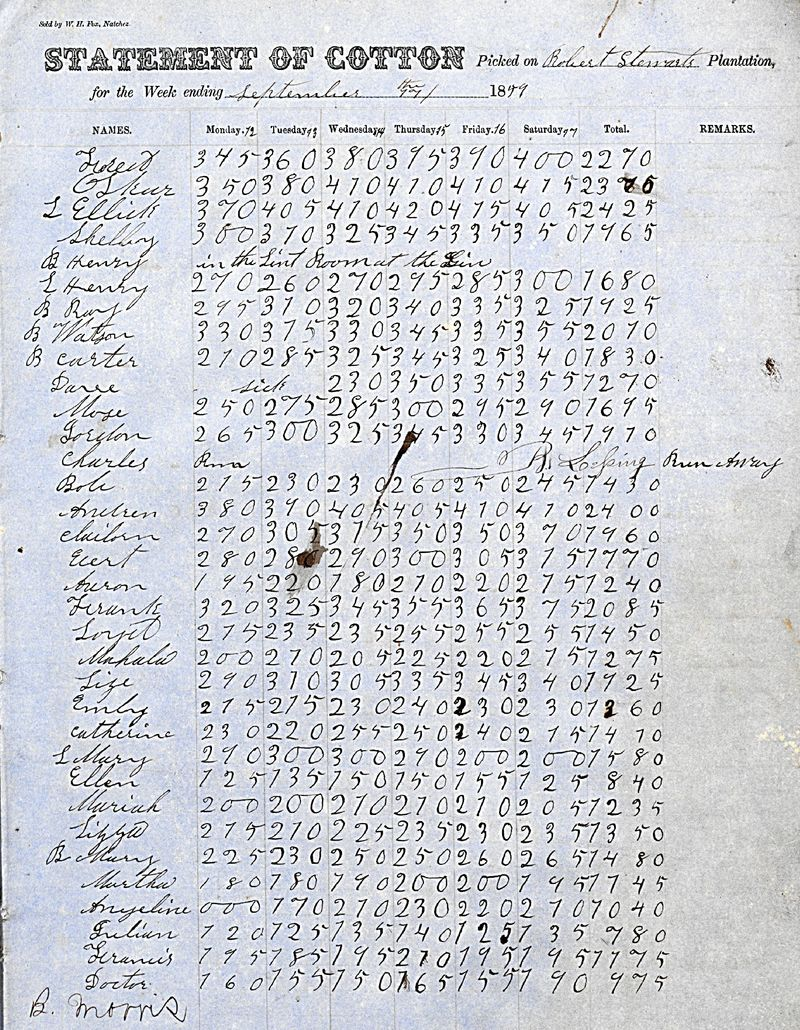 Sold by W. H. Fox, Natchez.
STATEMENT OF COTTON Picked on Robert Stewarts Plantation,
for the Week ending September 1859
NAMES. Monday. 12 Tuesday 13 Wednesday 14 Thursday 15 Friday. 16 Saturday 17 Total. REMARKS.
345 360 380 395 390 400 2270
Oskur 350 380 410 410 410 415
L Ellick 370 405 410 420 415 405 2425
Shelby 300 310 325 345 335 350 1965
B Henry in the Lint Room at the Gin
L Henry 270 260 270 295 285 300 1680
B Ray 295 310 320 340 335 325 1925
B Watson 330 375 330 345 335 355 2070
B Carter 210 285 325 345 325 340 1830
sick 230 350 335 355 1270
Mose 250 275 285 300 295 290 1695
Gordon 265 300 325 345 330 345 1910
Charles Run Away
Bob 215 230 230 260 250 245 1430
Andren 380 390 405 405 410 410 2400
270 305 315 350 350 370 1960
280 280 290 300 305 315 1770
Aaron 195 220 180 210 220 215 1240
Frank 320 325 345 355 365 375 2085
275 235 235 255 255 255 1450
Mahala 200 210 205 225 220 215 1275
Lize 290 310 305 335 345 340 1925
Emily 215 215 230 240 230 230 1360
Catherine 230 220 255 250 240 215 1410
L Mary 290 300 300 290 200 200 1580
Ellen 125 135 150 150 155 125 840
Mariah 200 200 210 210 210 205 1235
215 210 225 235 230 235 1350
B Mary 225 230 250 250 260 265 1480
Martha 180 180 190 200 200 195 1145
Angeline 000 170 210 230 220 210 1040
Julian 120 125 135 140 125 135 780
Francis 195 185 195 210 195 195 1175
Doctor 160 155 150 165 155 190 975
B. Morris